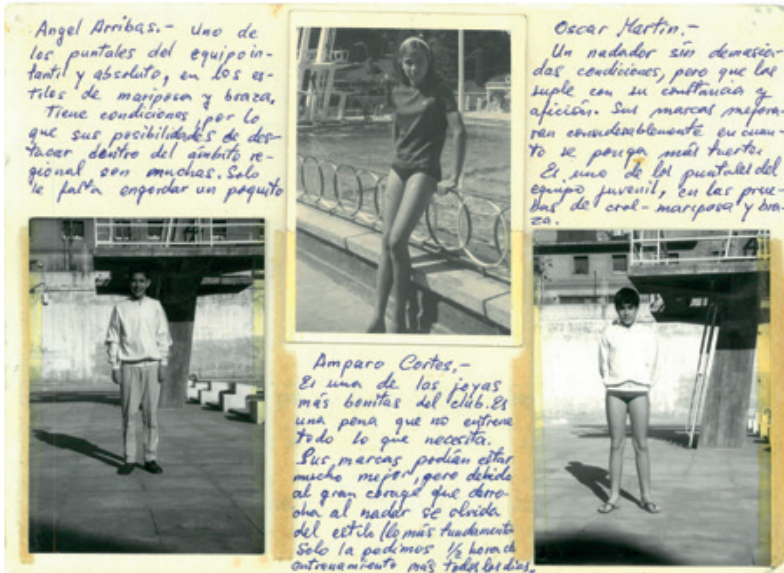 Angel Arribas.- Uno de
los puntales del equipo in-
fantil y absoluto, en los es-
tilos de mariposa y braza.
Tiene condiciones por lo
que sus posibilidades de des-
tacar dentro del ámbito re-
gional son muchas. Solo
le falta engordar un poquito
Amparo Cortes.-
Es una de las joyas
más bonitas del club. Es
una pena que no entrene
todo lo que necesita.
Sus marcas podían estar
mucho mejor, pero debido
al gran corage que derro-
cha al nadar se olvida
del estilo (lo más fundament
Solo la pedimos 1/2 hora de
entrenamiento más todos los dias.
Oscar Martin.-
Un nadador sin demasia-
das condiciones, pero que las
suple con su constancia y
afición. Sus marcas mejora-
ran considerablemente en cuan-
to se ponga más fuerte.
Es uno de los puntales del
equipo juvenil, en las prue-
bas de crol-mariposa y bra-
za.